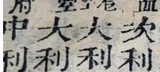 次利
大利
大利
中利